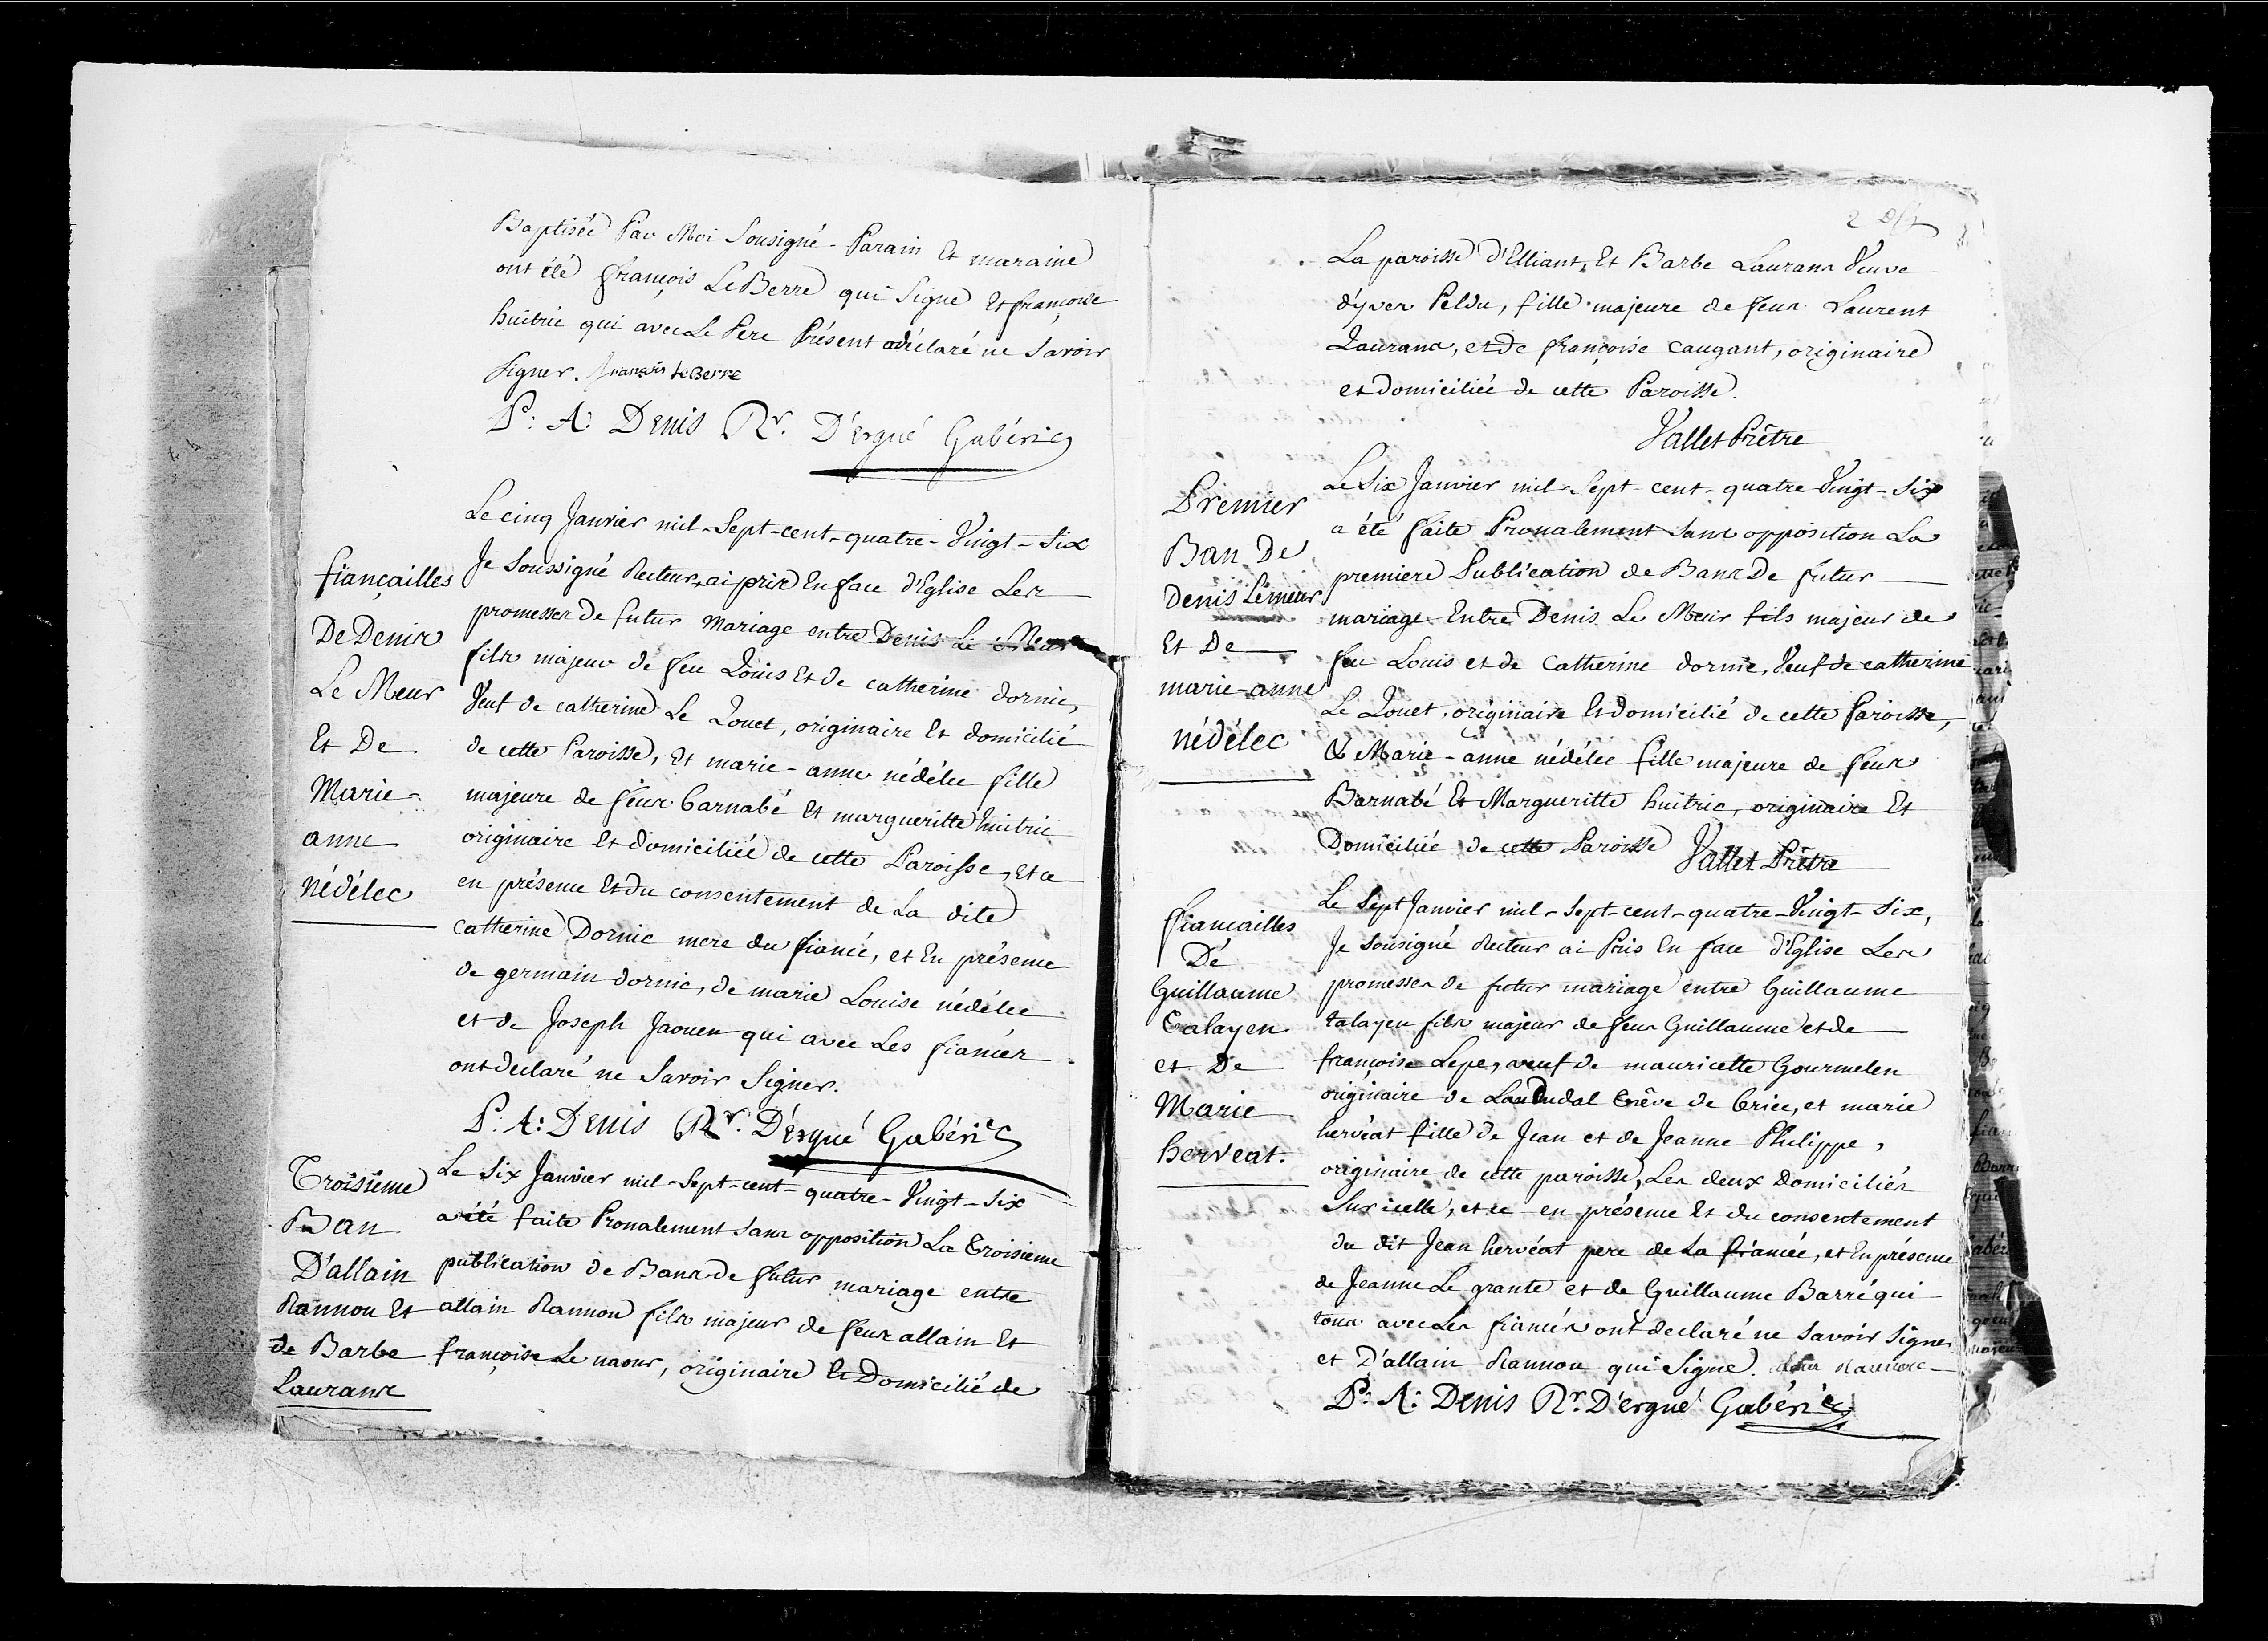 Baptisée Par Moi Sousigné - Parain Et maraine
ont été françois LeBerre qui Signe Et françoise
huitric qui avec Le Pere Présent a déclaré ne Savoir
Signer. françois LeBerre
P: A: Denis Rr. D'ergué Gabéric
fiançailles
De Denis
Le Meur
Et De
Marie-
anne
Nédélec
Le cinq Janvier mil-Sept-cent-quatre-Vingt-Six
Je Soussigné Recteur, ai pris En face d'Eglise Les
promesses de futur mariage entre Denis Le Meur
fils majeur de feu Louis Et de catherine dornic,
Veuf de catherine Le Louet, originaire Et domicilié
de cette Paroisse, Et marie-anne nédélec fille
majeure de feus barnabé Et margueritte huitric
originaire Et domiciliée de cette Paroisse, Et ce
en présence Et du consentement de La dite
catherine Dornic mere du fiancé, et En présence
de germain dornic, de marie Louise nédélec
et de Joseph Jaouen qui avec Les fiancés
ont declaré ne Savoir Signer.
P. A: Denis Rr. D'ergué Gabéric
Troisieme
Ban
D'allain
Rannou Et
de Barbe
Laurans
Le Six Janvier mil-Sept-cent-quatre-Vingt-Six
a été faite Pronalement Sans opposition La Troisieme
publication de Bans de futur mariage entre
allain Rannou fils majeur de feus allain Et
françoise Le naour, originaire Et Domicilié de
2
La paroisse d'Elliant, Et Barbe Laurans Veuve
d'yves Peldu, fille majeure de feus Laurent
Laurans, et de françoise caugant, originaire
et domiciliée de cette Paroisse.
Vallet Prêtre
Premier
Ban De
Denis Lemeur
Et De
marie-anne
nédélec
Le Six Janvier mil-Sept-cent-quatre-Vingt-Six
a été faite Pronalement Sans opposition La
premiere Publication de Bans De futur
mariage Entre Denis Le Meur fils majeur de
feu Louis et de Catherine dornic, Veuf de catherine
Le Louet, originaire Et domicilié de cette Paroisse,
Et Marie-anne nédélec fille majeure de feus
Barnabé Et Margueritte huitric, originaire Et
Domiciliée de cette Paroisse Vallet Prêtre
fiancailles
De
Guillaume
Talayen
et De
Marie
herveat.
Le Sept Janvier mil-Sept-cent-quatre-Vingt-Six,
Je Sousigné Recteur ai Pris En face d'Eglise Les
promesses de futur mariage entre Guillaume
talayen fils majeur de feus Guillaume et de
françoise Lepe, veuf de mauricette Gourmelen
originaire de Landudal trêve de briec, et marie
hervéat fille de Jean et de Jeanne Philippe,
originaire de cette paroisse, Les deux Domiciliés
Sur icelle, et ce en présence Et du consentement
du dit Jean hervéat pere de La fiancée, et En présence
de Jeanne Le grante et de Guillaume Barré qui
tous avec Les fiancés ont declaré ne Savoir Signer
et D'allain Rannou qui Signe.
P. A: Denis Rr. D'ergué Gabéric